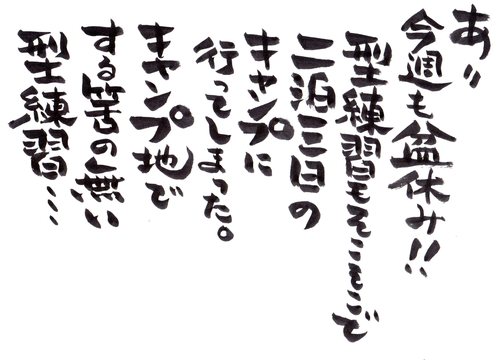 あ〃
今週も盆休み!!
型練習もそこそこで
二泊三日の
キャンプに
行ってしまった。
キャンプ地で
する筈の無い
型練習…